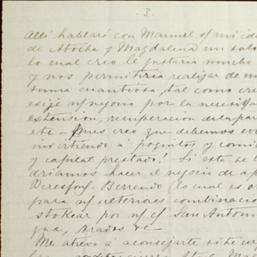 3.
Allí hablaré con Manuel s/ mi ide
de Atocha y Magdalena un solo
lo cual creo le gustaría mucho
y nos permitiría realizar de m
suma cuantiosa tal como cre
exige n/ negocio por la necesi
extensión, recuperación de la par
etc - Pues creo que debemos
á poquitos y comi
y capital prestado! Si esto se
dríamos hacer el negocio de a
Beresford. Berrendo, lo cual es
para n/ ulteriores combinacio
stokear por n/ c/ San Antoni
gua, Prados &c
Me atrevo á aconsejarte